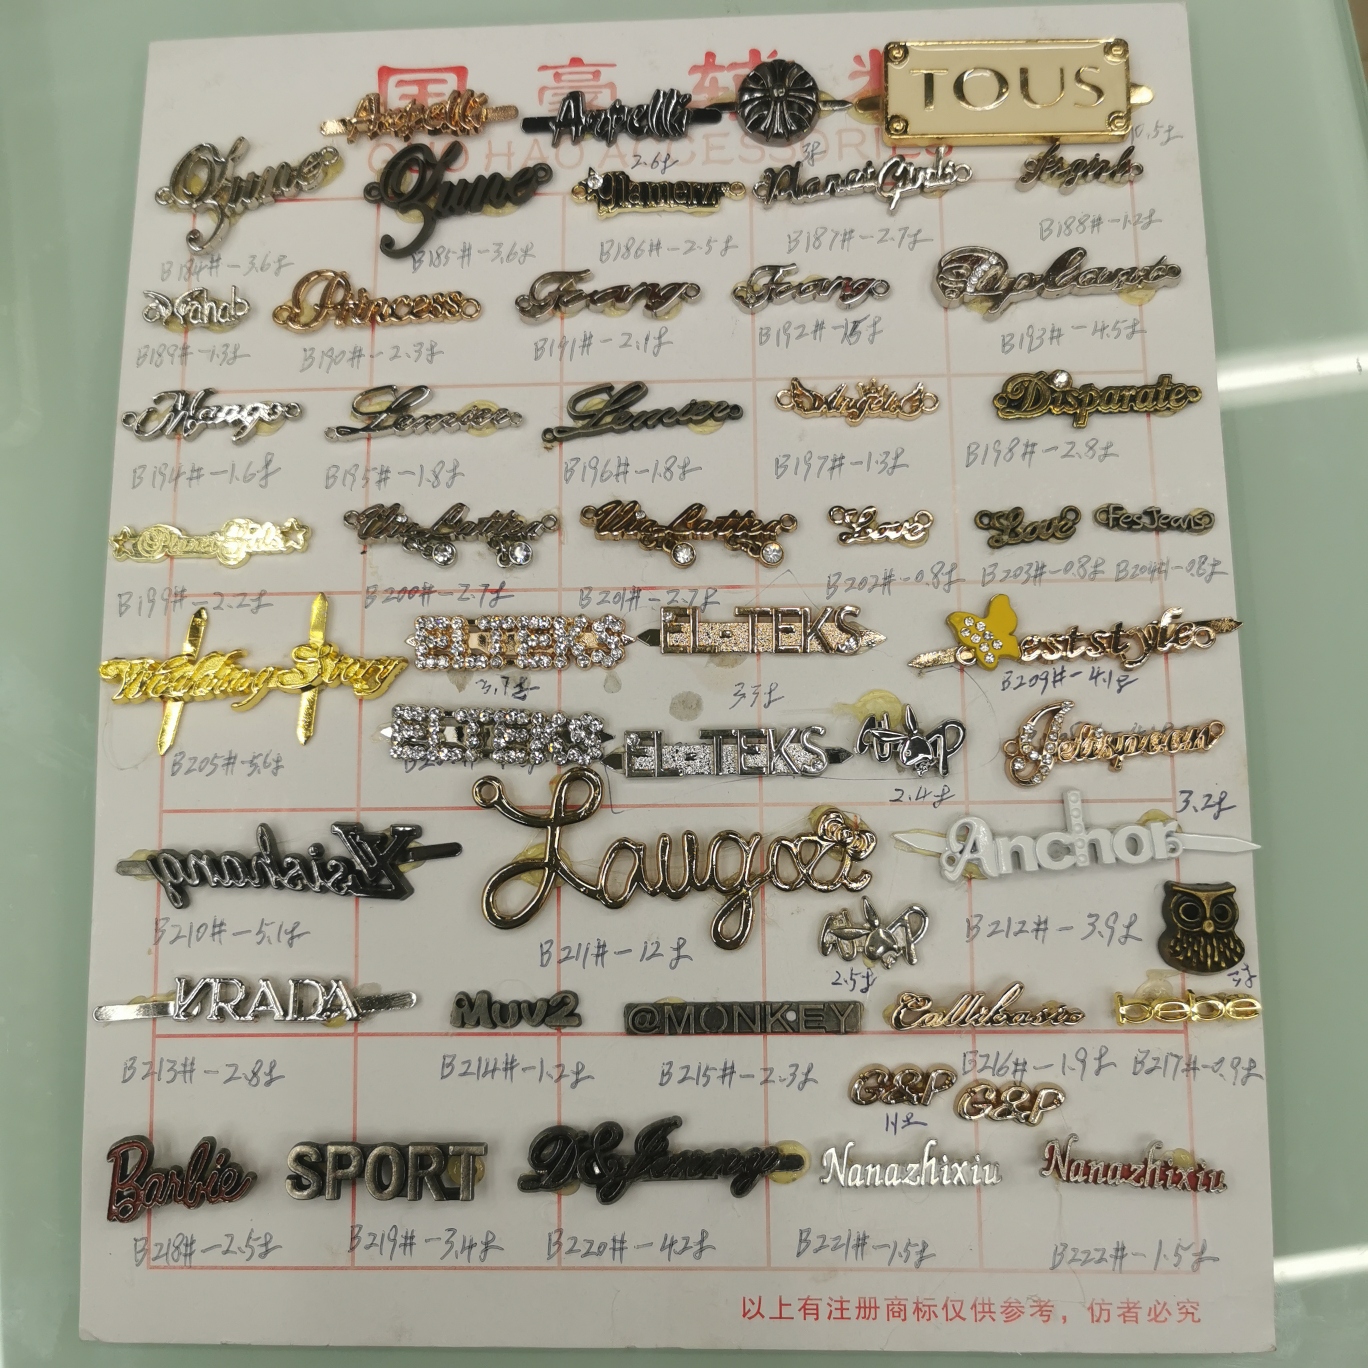 国豪辅料
GUO HAO ACCESSORIES
TOUS
2.6g
B184#-3.6g
B185#-3.6g
B186#-2.5g
B187#-2.7g
B188#-1.2g
Princess
B189#-1.3g
B190#-2.3g
B191#-2.1g
B192#
B193#-4.5g
Mango
Lemier
Lemier
Angel
Disparate
B194#-1.6g
B195#-1.8g
B196#-1.8g
B197#-1.3g
B198#-2.8g
Love
Love
FesJeans
B199#-2.2g
B200#-2.7g
B201#-2.7g
B202#-0.8g
B203#-0.8g
B204#-0.8g
Wedding Story
EL-TEKS
EL-TEKS
eststyle
3.7g
3.3g
B209#-4.1g
EL-TEKS
EL-TEKS
B205#-5.6g
2.4g
3.2g
Asishang
Laugoa
Anchor
B210#-5.1g
B211#-12g
B212#-3.9g
2.5g
VRADA
Muv2
@MONKEY
bebe
B213#-2.8g
B214#-1.2g
B215#-2.3g
B216#-1.9g
B217#-0.9g
G&P
G&P
Barbie
SPORT
D&Jimmy
Nanazhixiu
Nanazhixiu
B218#-2.5g
B219#-3.4g
B220#-4.2g
B221#-1.5g
B222#-1.5g
以上有注册商标仅供参考，仿者必究